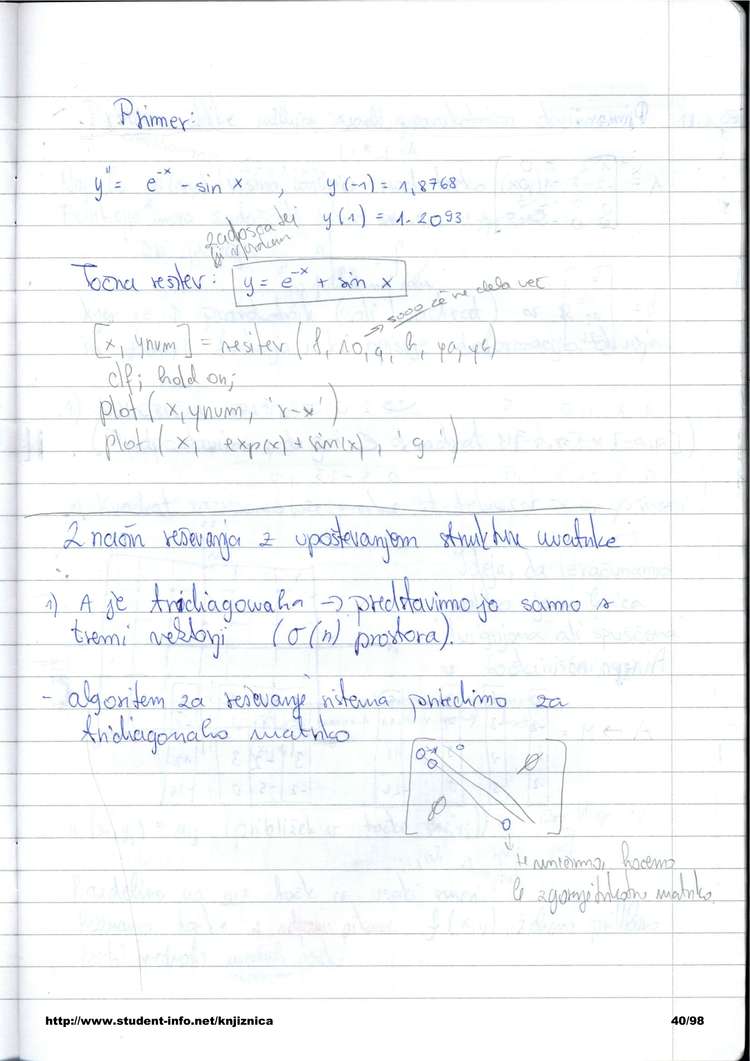 Primer:
y'' = e^-x - sin x , y(-1) = 1,8768
y(1) = 1.2093
zadošča tej
Točna rešitev: y = e^-x + sin x
→ 5000 če ne dela več
[x, ynum] = resitev (f, 10, a, b, ya, yb)
clf; hold on;
plot(x, ynum, 'r-x')
plot(x, exp(x) + sin(x), 'g')
2 način reševanja z upoštevanjem strukture matrike
1) A je tridiagonalna → predstavimo jo samo s
tremi vektorji (O(n) prostora).
- algoritem za reševanje sistema priredimo za
tridiagonalno matriko
0 0
0 0
0
0
hočemo
le zgornjetrikotno matriko.
http://www.student-info.net/knjiznica 40/98